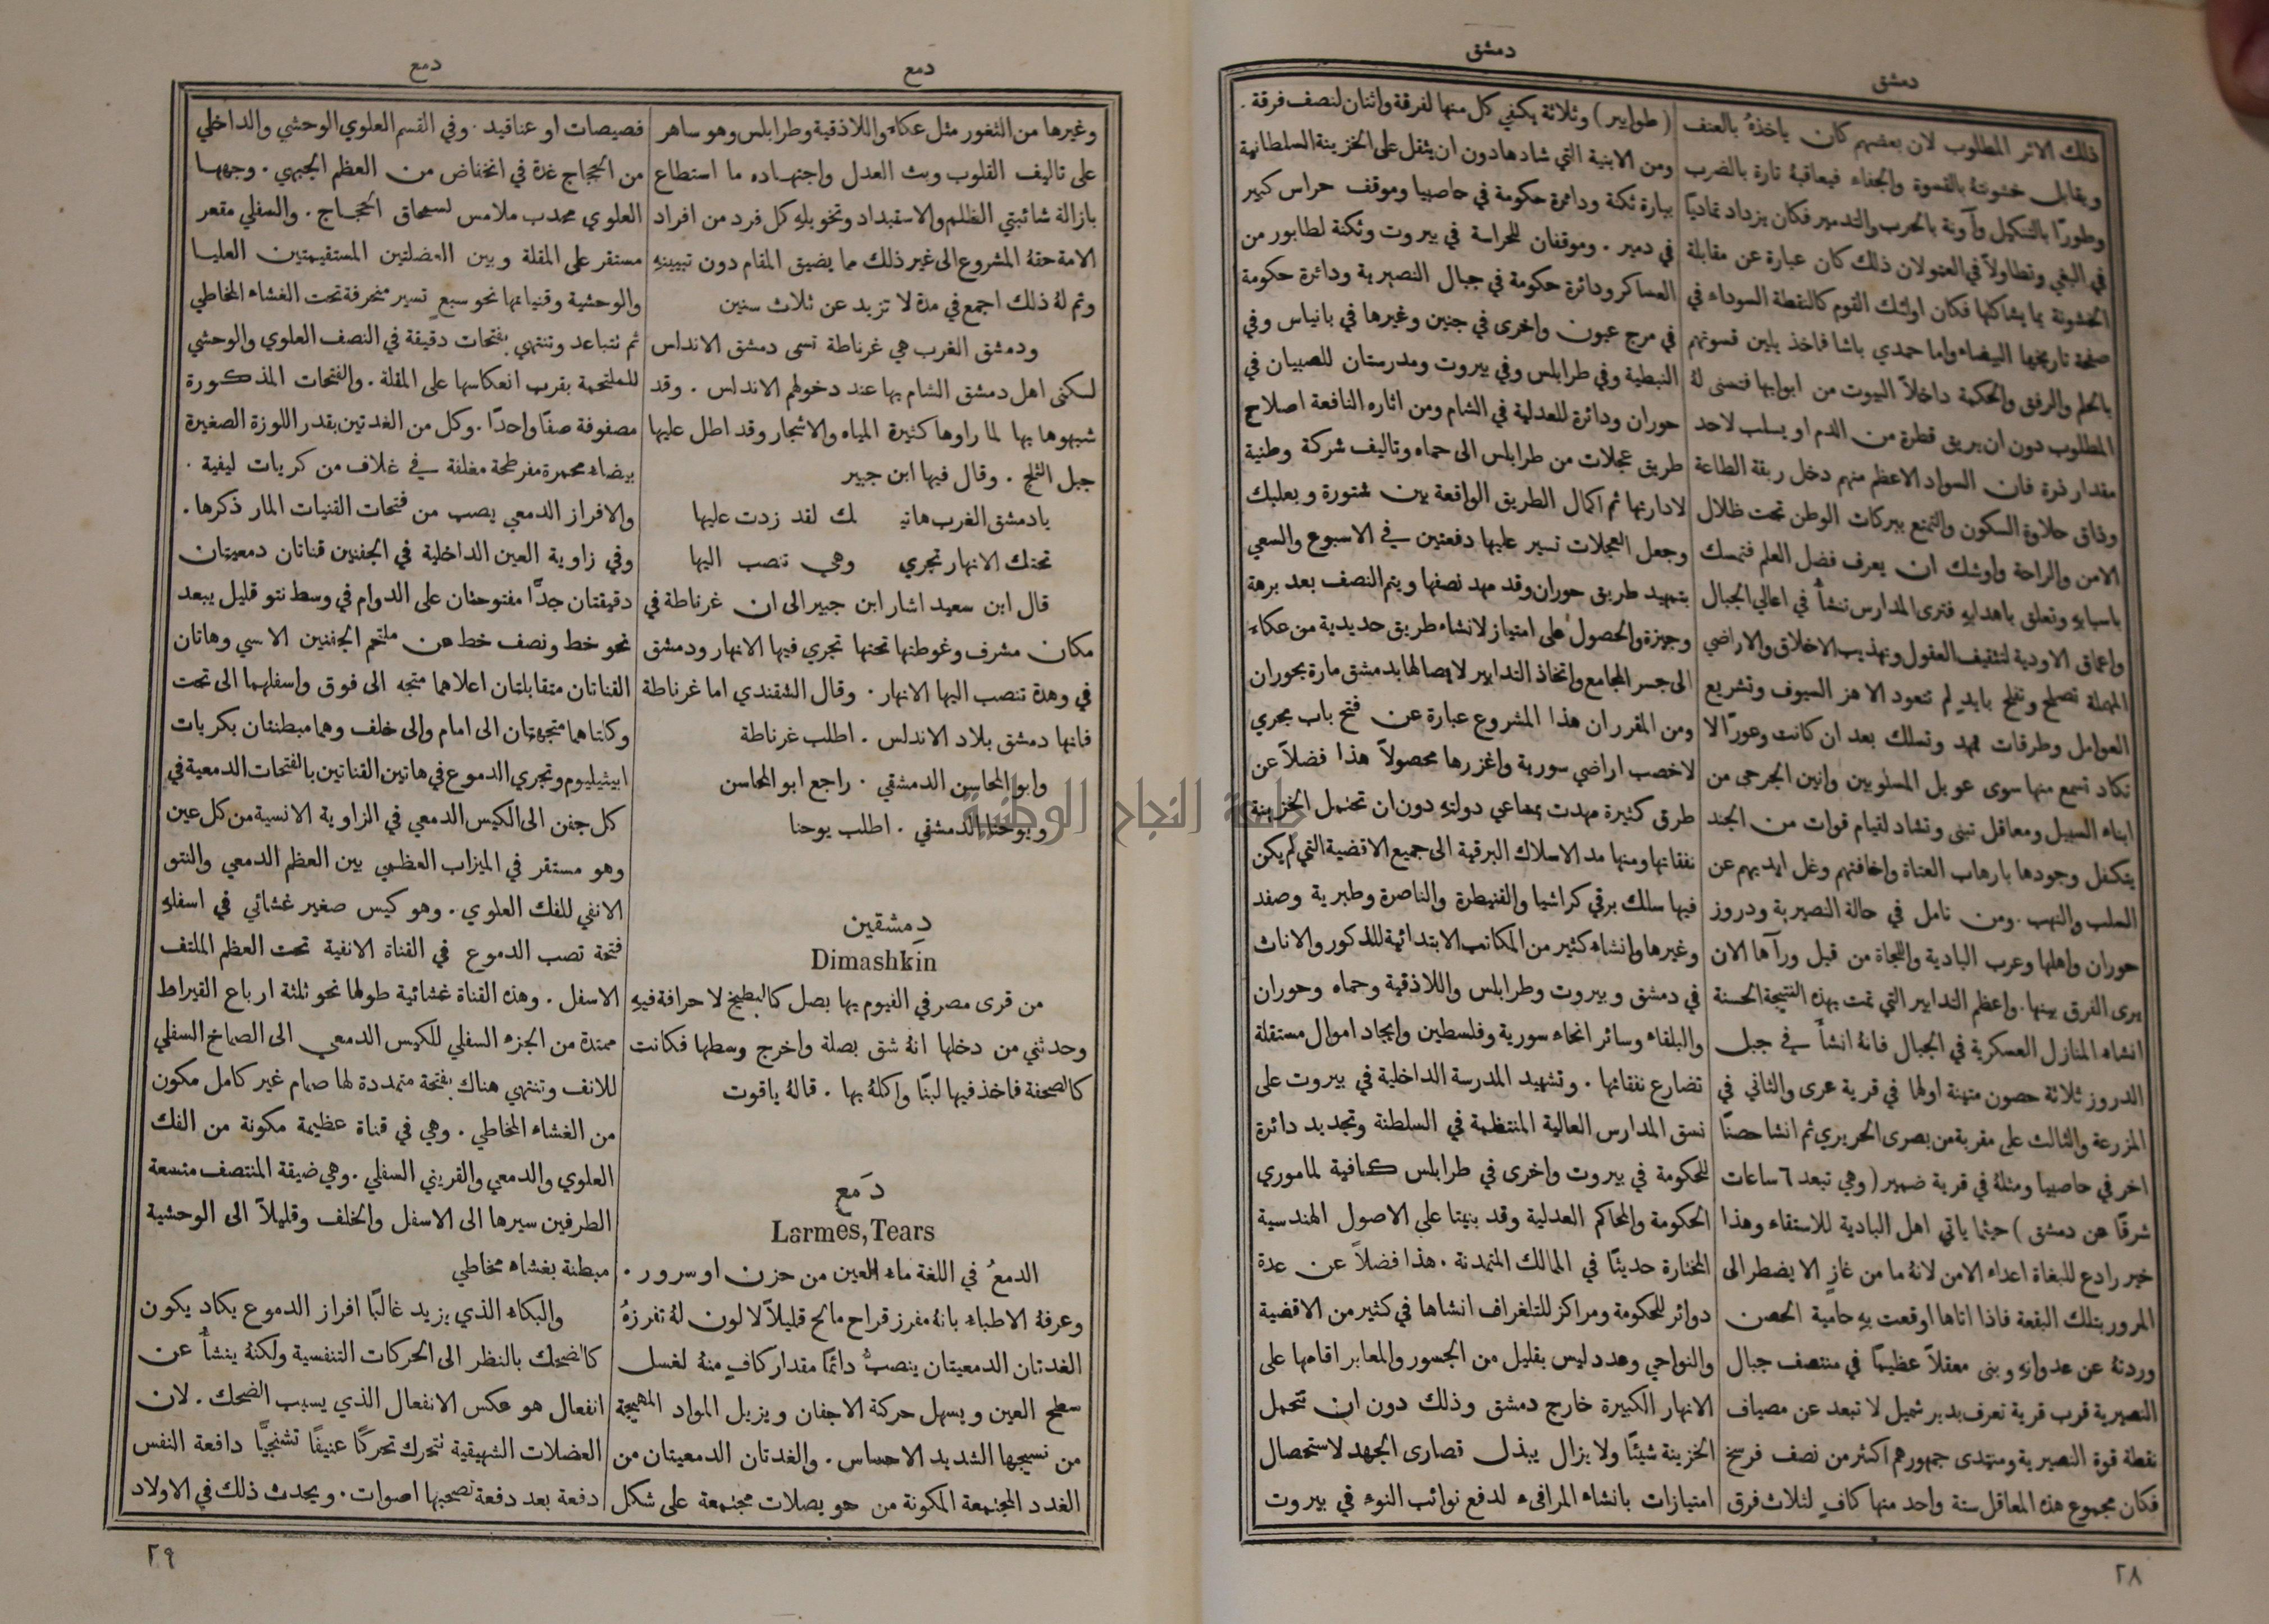 دمشق
دمشق
ذلك الاثر المطلوب لان بعضهم كان ياخذهُ بالعنف
ويقابل خشونتهُ بالقسوة والجفاء فيعاقبهُ تارة بالضرب
وطورًا بالتنكيل وآونة بالحرب والتدمير فكان يزداد تماديًا
في البغي وتطاولًا في العتو لان ذلك كان عبارة عن مقابلة
الخشونة بما يشاكلها فكان اولئك القوم كالنقطة السوداء في
صفحة تاريخها البيضاء واما حمدي باشا فاخذ يلين قسوتهم
بالحلم والرفق والحكمة داخلًا البيوت من ابوابها فتسنى لهُ
المطلوب دون ان يريق قطرة من الدم او يسلب لاحد
مقدار ذرة فان السواد الاعظم منهم دخل ربقة الطاعة
وذاق حلاوة السكون والتمتع ببركات الوطن تحت ظلال
الامن والراحة واوشك ان يعرف فضل العلم فتمسك
باسبابهِ وتعلق باهدابهِ فترى المدارس تنشأُ في اعالي الجبال
واعماق الاودية لتثقيف العقول وتهذيب الاخلاق والاراضي
المهملة تصلح وتفلح بايدٍ لم تتعود الا هز السيوف وتشريع
العوامل وطرقات تمهد وتسلك بعد ان كانت وعورًا لا
تكاد تسمع منها سوى عويل المسلوبين وانين الجرحى من
ابناء السبيل ومعاقل تبنى وتشاد لقيام قوات من الجند
يتكفل وجودها بارهاب العتاة واخافتهم وغل ايديهم عن
السلب والنهب. ومن تامل في حالة النصيرية ودروز
حوران واهلها وعرب البادية واللجاة من قبل ورآها الان
يرى الفرق بينها. واعظم التدابير التي تمت بهذه النتيجة الحسنة
انشاء المنازل العسكرية في الجبال فانهُ انشأ في جبل
الدروز ثلاثة حصون متينة اولها في قرية عرى والثاني في
المزرعة والثالث على مقربة من بصرى الحريري ثم انشا حصنًا
اخر في حاصبيا ومثلهُ في قرية ضمير (وهي تبعد ٦ ساعات
شرقًا عن دمشق) حيثما ياتي اهل البادية للاستقاء وهذا
خير رادع للبغاة اعداء الامن لانهُ ما من غازٍ الا يضطر الى
المرور بتلك البقعة فاذا اتاها اوقعت بهِ حامية الحصن
وردتهُ عن عدوانهِ وبنى معقلًا عظيمًا في منتصف جبال
النصيرية قرب قرية تعرف بدير شميل لا تبعد عن مصياف
نقطة قوة النصيرية ومنتدى جمهورهم اكثر من نصف فرسخ
فكان مجموع هذه المعاقل ستة واحد منها كافٍ لثلاث فرق
(طوابير) وثلاثة يكفي كل منها لفرقة واثنان لنصف فرقة.
ومن الابنية التي شادها دون ان يثقل على الخزينة السلطانية
ببارة ثكنة ودائرة حكومة في حاصبيا وموقف حراس كبير
في دمير. وموقفان للحراسة في بيروت وثكنة لطابور من
العساكر ودائرة حكومة في جبال النصيرية ودائرة حكومة
في مرج عيون واخرى في جنين وغيرها في بانياس وفي
النبطية وفي طرابلس وفي بيروت ومدرستان للصبيان في
حوران ودائرة للعدلية في الشام ومن اثاره النافعة اصلاح
طريق عجلات من طرابلس الى حماه وتاليف شركة وطنية
لادارتها ثم اكمال الطريق الواقعة بين شتورة وبعلبك
وجعل العجلات تسير عليها دفعتين في الاسبوع والسعي
بتمهيد طريق حوران وقد مهد نصفها ويتم النصف بعد برهة
وجيزة والحصول على امتياز لانشاء طريق حديدية من عكاء
الى جسر المجامع واتخاذ التدابير لايصالها بدمشق مارة بحوران
ومن المقرر ان هذا المشروع عبارة عن فتح باب مجري
لاخصب اراضي سورية واغزرها محصولًا هذا فضلًا عن
طرق كثيرة مهدت بمساعي دولتهِ دون ان تحتمل الخزينة
نفقاتها ومنها مد الاسلاك البرقية الى جميع الاقضية التي لم يكن
فيها سلك برقي كراشيا والقنيطرة والناصرة وطبرية وصفد
وغيرها وانشاء كثير من المكاتب الابتدائية للذكور والاناث
في دمشق وبيروت وطرابلس واللاذقية وحماه وحوران
والبلقاء وسائر انحاء سورية وفلسطين وايجاد اموال مستقلة
تضارع نفقاتها. وتشهيد المدرسة الداخلية في بيروت على
نسق المدارس العالية المنتظمة في السلطنة وتجديد دائرة
للحكومة في بيروت واخرى في طرابلس كافية لماموري
الحكومة والمحاكم العدلية وقد بنيتا على الاصول الهندسية
المختارة حديثًا في الممالك المتمدنة. هذا فضلًا عن عدة
دوائر للحكومة ومراكز للتلغراف انشاها في كثير من الاقضية
والنواحي وعدد ليس بقليل من الجسور والمعابر اقامها على
الانهار الكبيرة خارج دمشق وذلك دون ان تتحمل
الخزينة شيئًا ولا يزال يبذل قصارى الجهد لاستحصال
امتيازات بانشاء المرافىء لدفع نوائب النوء في بيروت
٢٨
دمع
دمع
وغيرها من الثغور مثل عكاء واللاذقية وطرابلس وهو ساهر
على تاليف القلوب وبث العدل واجتهاده ما استطاع
بازالة شائبتي الظلم والاستبداد وتخويلهِ كل فرد من افراد
الامة حقهُ المشروع الى غير ذلك مما يضيق المقام دون تبيينهِ
وتم لهُ ذلك اجمع في مدة لا تزيد عن ثلاث سنين
ودمشق الغرب هي غرناطة تسمى دمشق الاندلس
لسكنى اهل دمشق الشام بها عند دخولهم الاندلس. وقد
شبهوها بها لما راوها كثيرة المياه والاشجار وقد اطل عليها
جبل الثلج. وقال فيها ابن جبير
يا دمشق الغرب هاتيـ ـك لقد زدت عليها
تحتك الانهار تجري وهي تنصب اليها
قال ابن سعيد اشار ابن جبير الى ان غرناطة في
مكان مشرف وغوطتها تحتها تجري فيها الانهار ودمشق
في وهدة تنصب اليها الانهار. وقال الشقندي اما غرناطة
فانها دمشق بلاد الاندلس. اطلب غرناطة
وابو المحاسن الدمشقي. راجع ابو المحاسن
ويوحنا الدمشقي. اطلب يوحنا
دِمشقين
Dimashkin
من قرى مصر في الفيوم بها بصل كالبطيخ لا حرافة فيهِ
وحدثني من دخلها انهُ شق بصلة واخرج وسطها فكانت
كالصحفة فاخذ فيها لبنًا واكلهُ بها. قالهُ ياقوت
دَمع
Larmes, Tears
الدمعُ في اللغة ماء العين من حزن او سرور.
وعرفهُ الاطباء بانهُ مفرز قراح مالح قليلًا لا لون لهُ تفرزهُ
الغدتان الدمعيتان ينصبُّ دائمًا مقدار كافٍ منهُ لغسل
سطح العين ويسهل حركة الاجفان ويزيل المواد المهيجة
من نسيجها الشديد الاحساس. والغدتان الدمعيتان من
الغدد المجتمعة المكونة من حويصلات مجتمعة على شكل
فصيصات او عناقيد. وفي القسم العلوي الوحشي والداخلي
من الحجاج غدة في انخفاض من العظم الجبهي. وجهها
العلوي محدب ملامس لسمحاق الحجاج. والسفلي مقعر
مستقر على المقلة وبين العضلتين المستقيمتين العليا
والوحشية وقنياتها نحو سبعٍ تسير منحرفة تحت الغشاء المخاطي
ثم تتباعد وتنتهي بفتحات دقيقة في النصف العلوي والوحشي
للملتحمة بقرب انعكاسها على المقلة. والفتحات المذكورة
مصفوفة صفًا واحدًا. وكل من الغدتين بقدر اللوزة الصغيرة
بيضاء محمرة مفرطحة مغلفة في غلاف من كريات ليفية.
والافراز الدمعي يصب من فتحات القنيات المار ذكرها.
وفي زاوية العين الداخلية في الجفنين قناتان دمعيتان
دقيقتان جدًّا مفتوحتان على الدوام في وسط نتو قليل يبعد
نحو خط ونصف خط عن ملتحم الجفنين الانسي وهاتان
القناتان متقابلتان اعلاهما متجه الى فوق واسفلهما الى تحت
وكلتاهما متجهتان الى امام والى خلف وهما مبطنتان بكريات
ابيثيليوم وتجري الدموع في هاتين القناتين بالفتحات الدمعية في
كل جفن الى الكيس الدمعي في الزاوية الانسية من كل عين
وهو مستقر في الميزاب العظمي بين العظم الدمعي والنتو
الانفي للفك العلوي. وهو كيس صغير غشائي في اسفلهِ
فتحة تصب الدموع في القناة الانفية تحت العظم الملتف
الاسفل. وهذه القناة غشائية طولها نحو ثلثة ارباع القيراط
ممتدة من الجزء السفلي للكيس الدمعي الى الصماخ السفلي
للانف وتنتهي هناك بفتحة متمددة لها صمام غير كامل مكون
من الغشاء المخاطي. وهي في قناة عظيمة مكونة من الفك
العلوي والدمعي والقريني السفلي. وهي ضيقة المنتصف متسعة
الطرفين سيرها الى الاسفل والخلف وقليلًا الى الوحشية
مبطنة بغشاء مخاطي
والبكاء الذي يزيد غالبًا افراز الدموع يكاد يكون
كالضحك بالنظر الى الحركات التنفسية ولكنهُ ينشأُ عن
انفعال هو عكس الانفعال الذي يسبب الضحك. لان
العضلات الشهيقية تتحرك تحركًا عنيفًا تشنجيًّا دافعة النفس
دفعة بعد دفعة تصحبها اصوات. ويحدث ذلك في الاولاد
٢٩
جامعة النجاح الوطنية